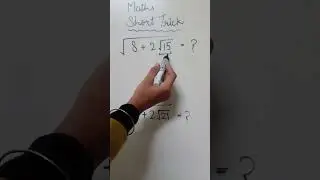 Maths
Short Trick
√8 + 2√15 = ?
+ 2√21 = ?